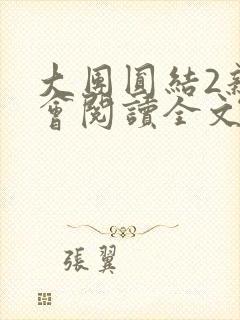 大團圓結2新
會閱讀全文
張翼